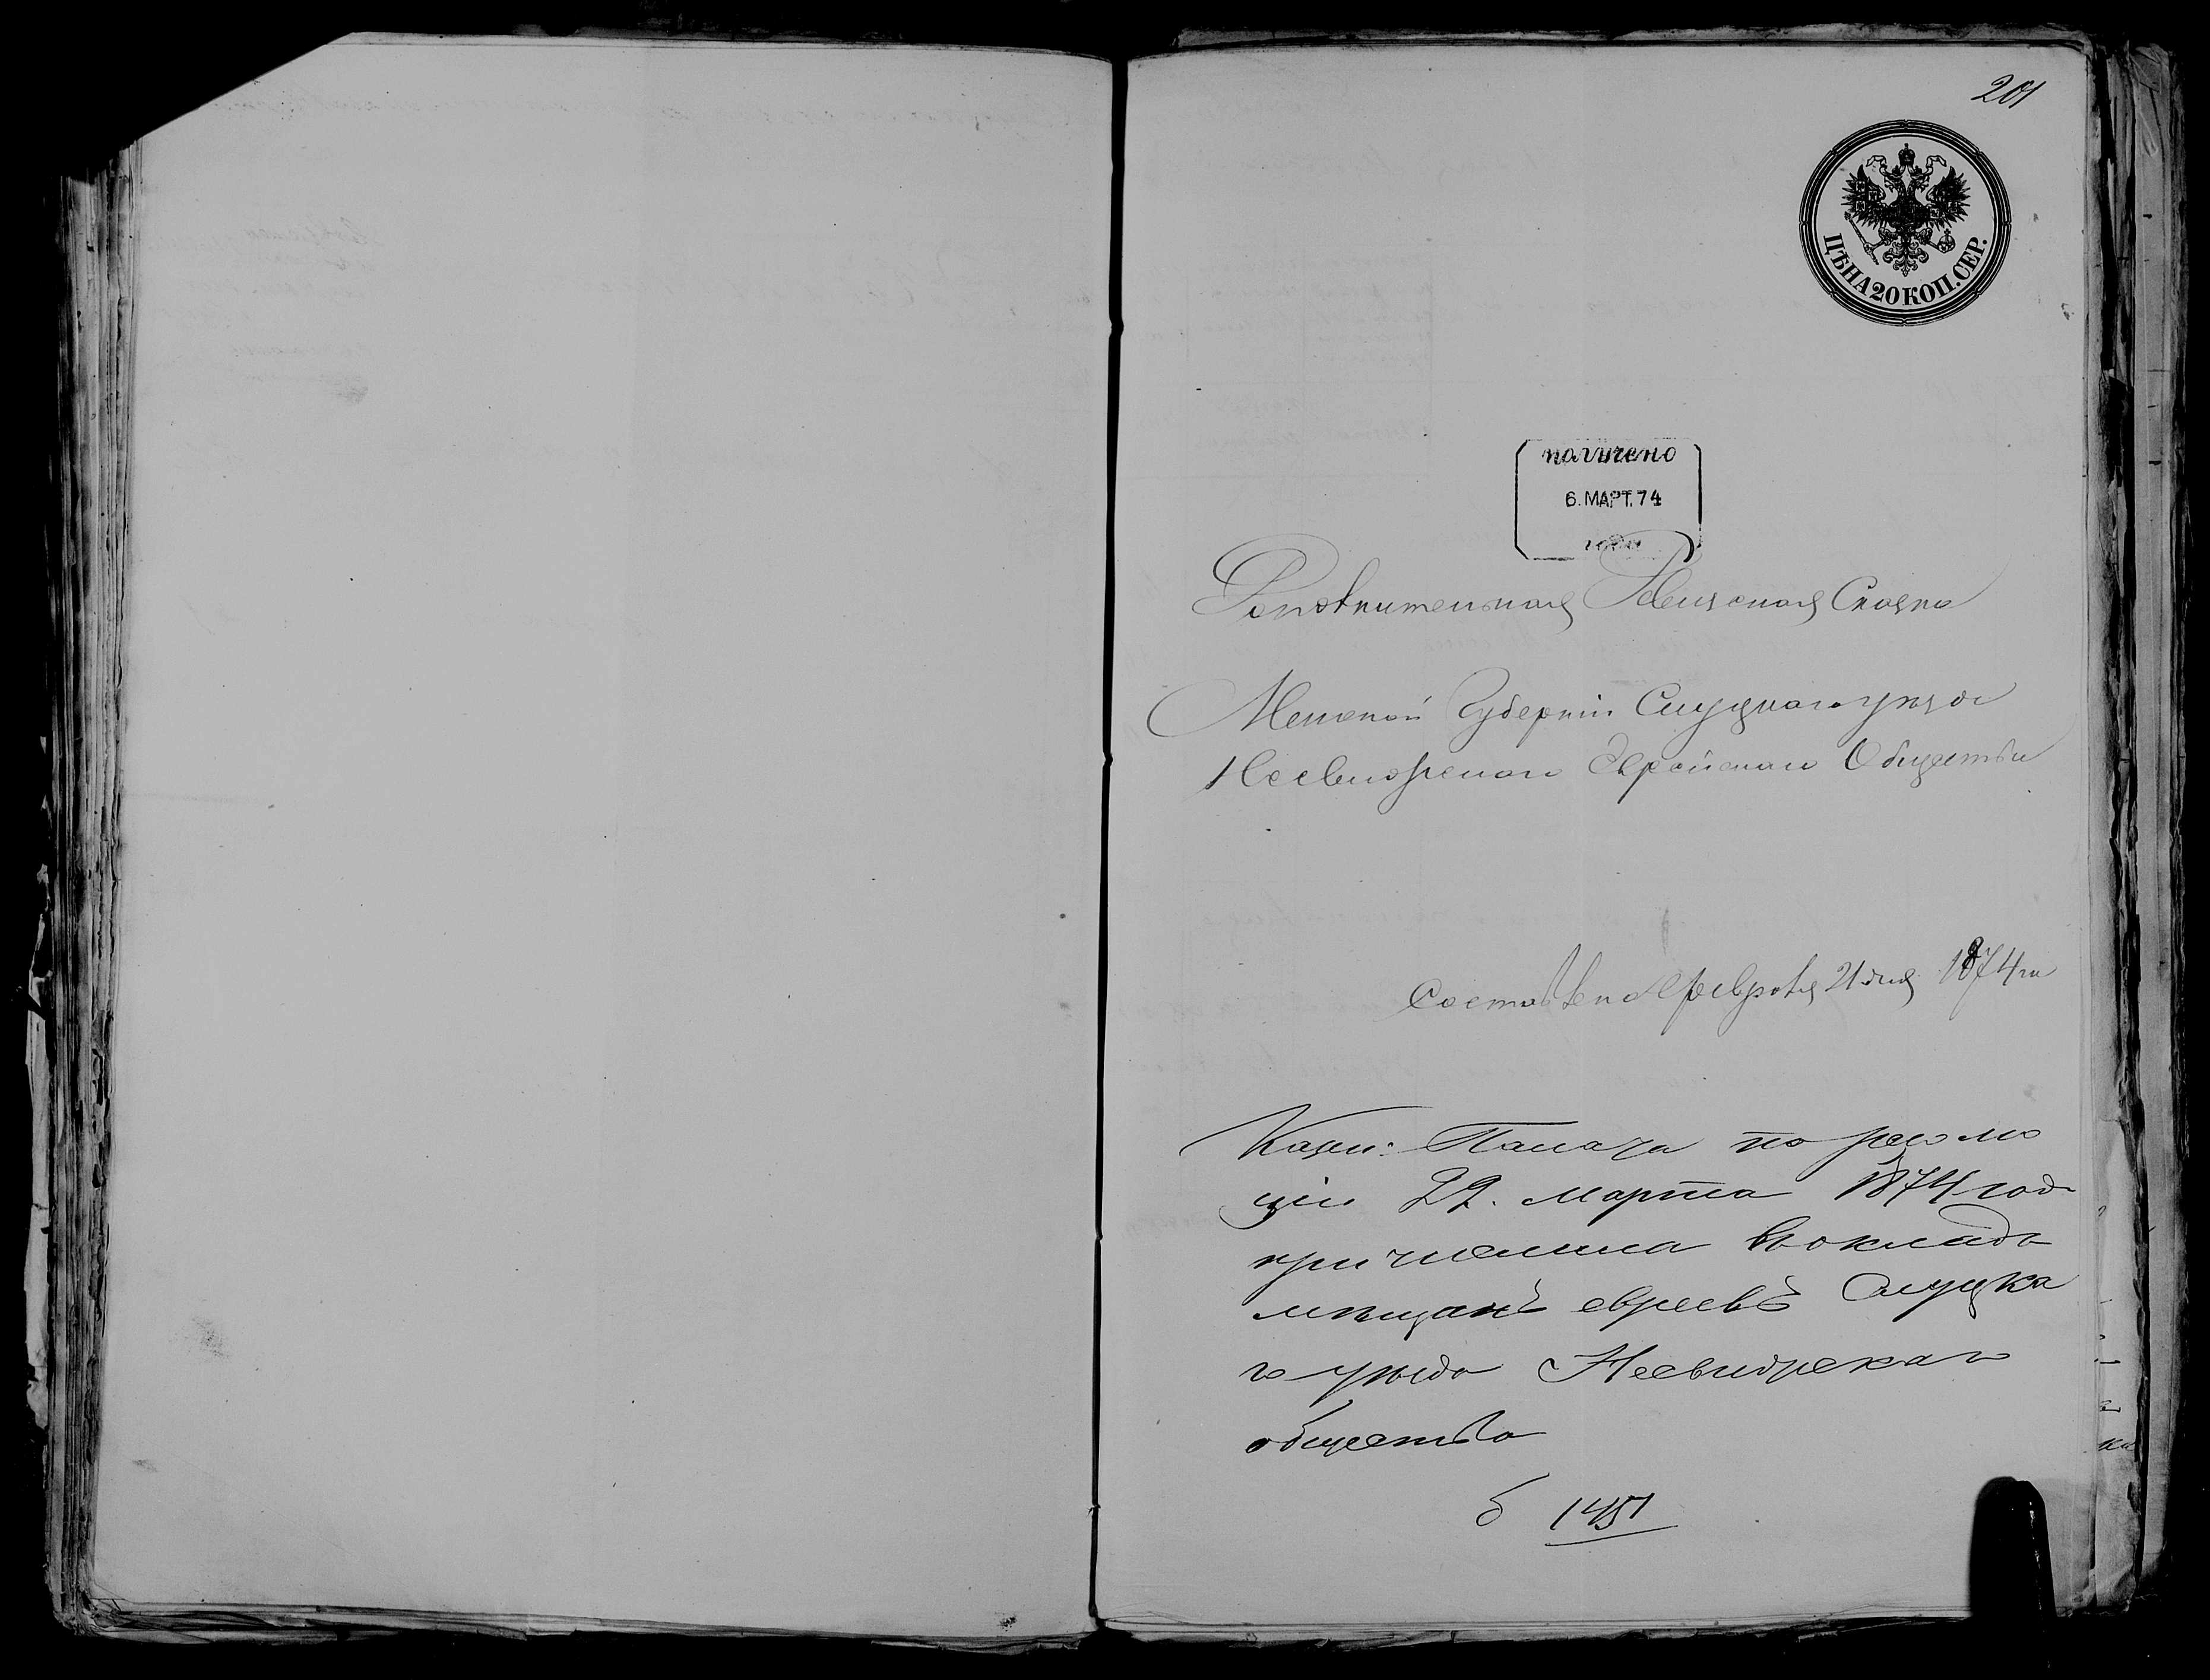 201
ЦѢНА 20 КОП. СЕР.
получено
6. МАРТ. 74
года
Дополнительная Ревизская Сказка
Минской Губерніи Слуцкаго уѣзда
Несвижскаго Еврейскаго Общества
Составлена Февраля 21 дня 1874 го
Казен: Палата по резолю
ціи 29. марта 1874 год
причислила въ окладъ
мѣщанъ евреевъ Слуцка
го уѣзда Несвижскаго
общества
б 1451